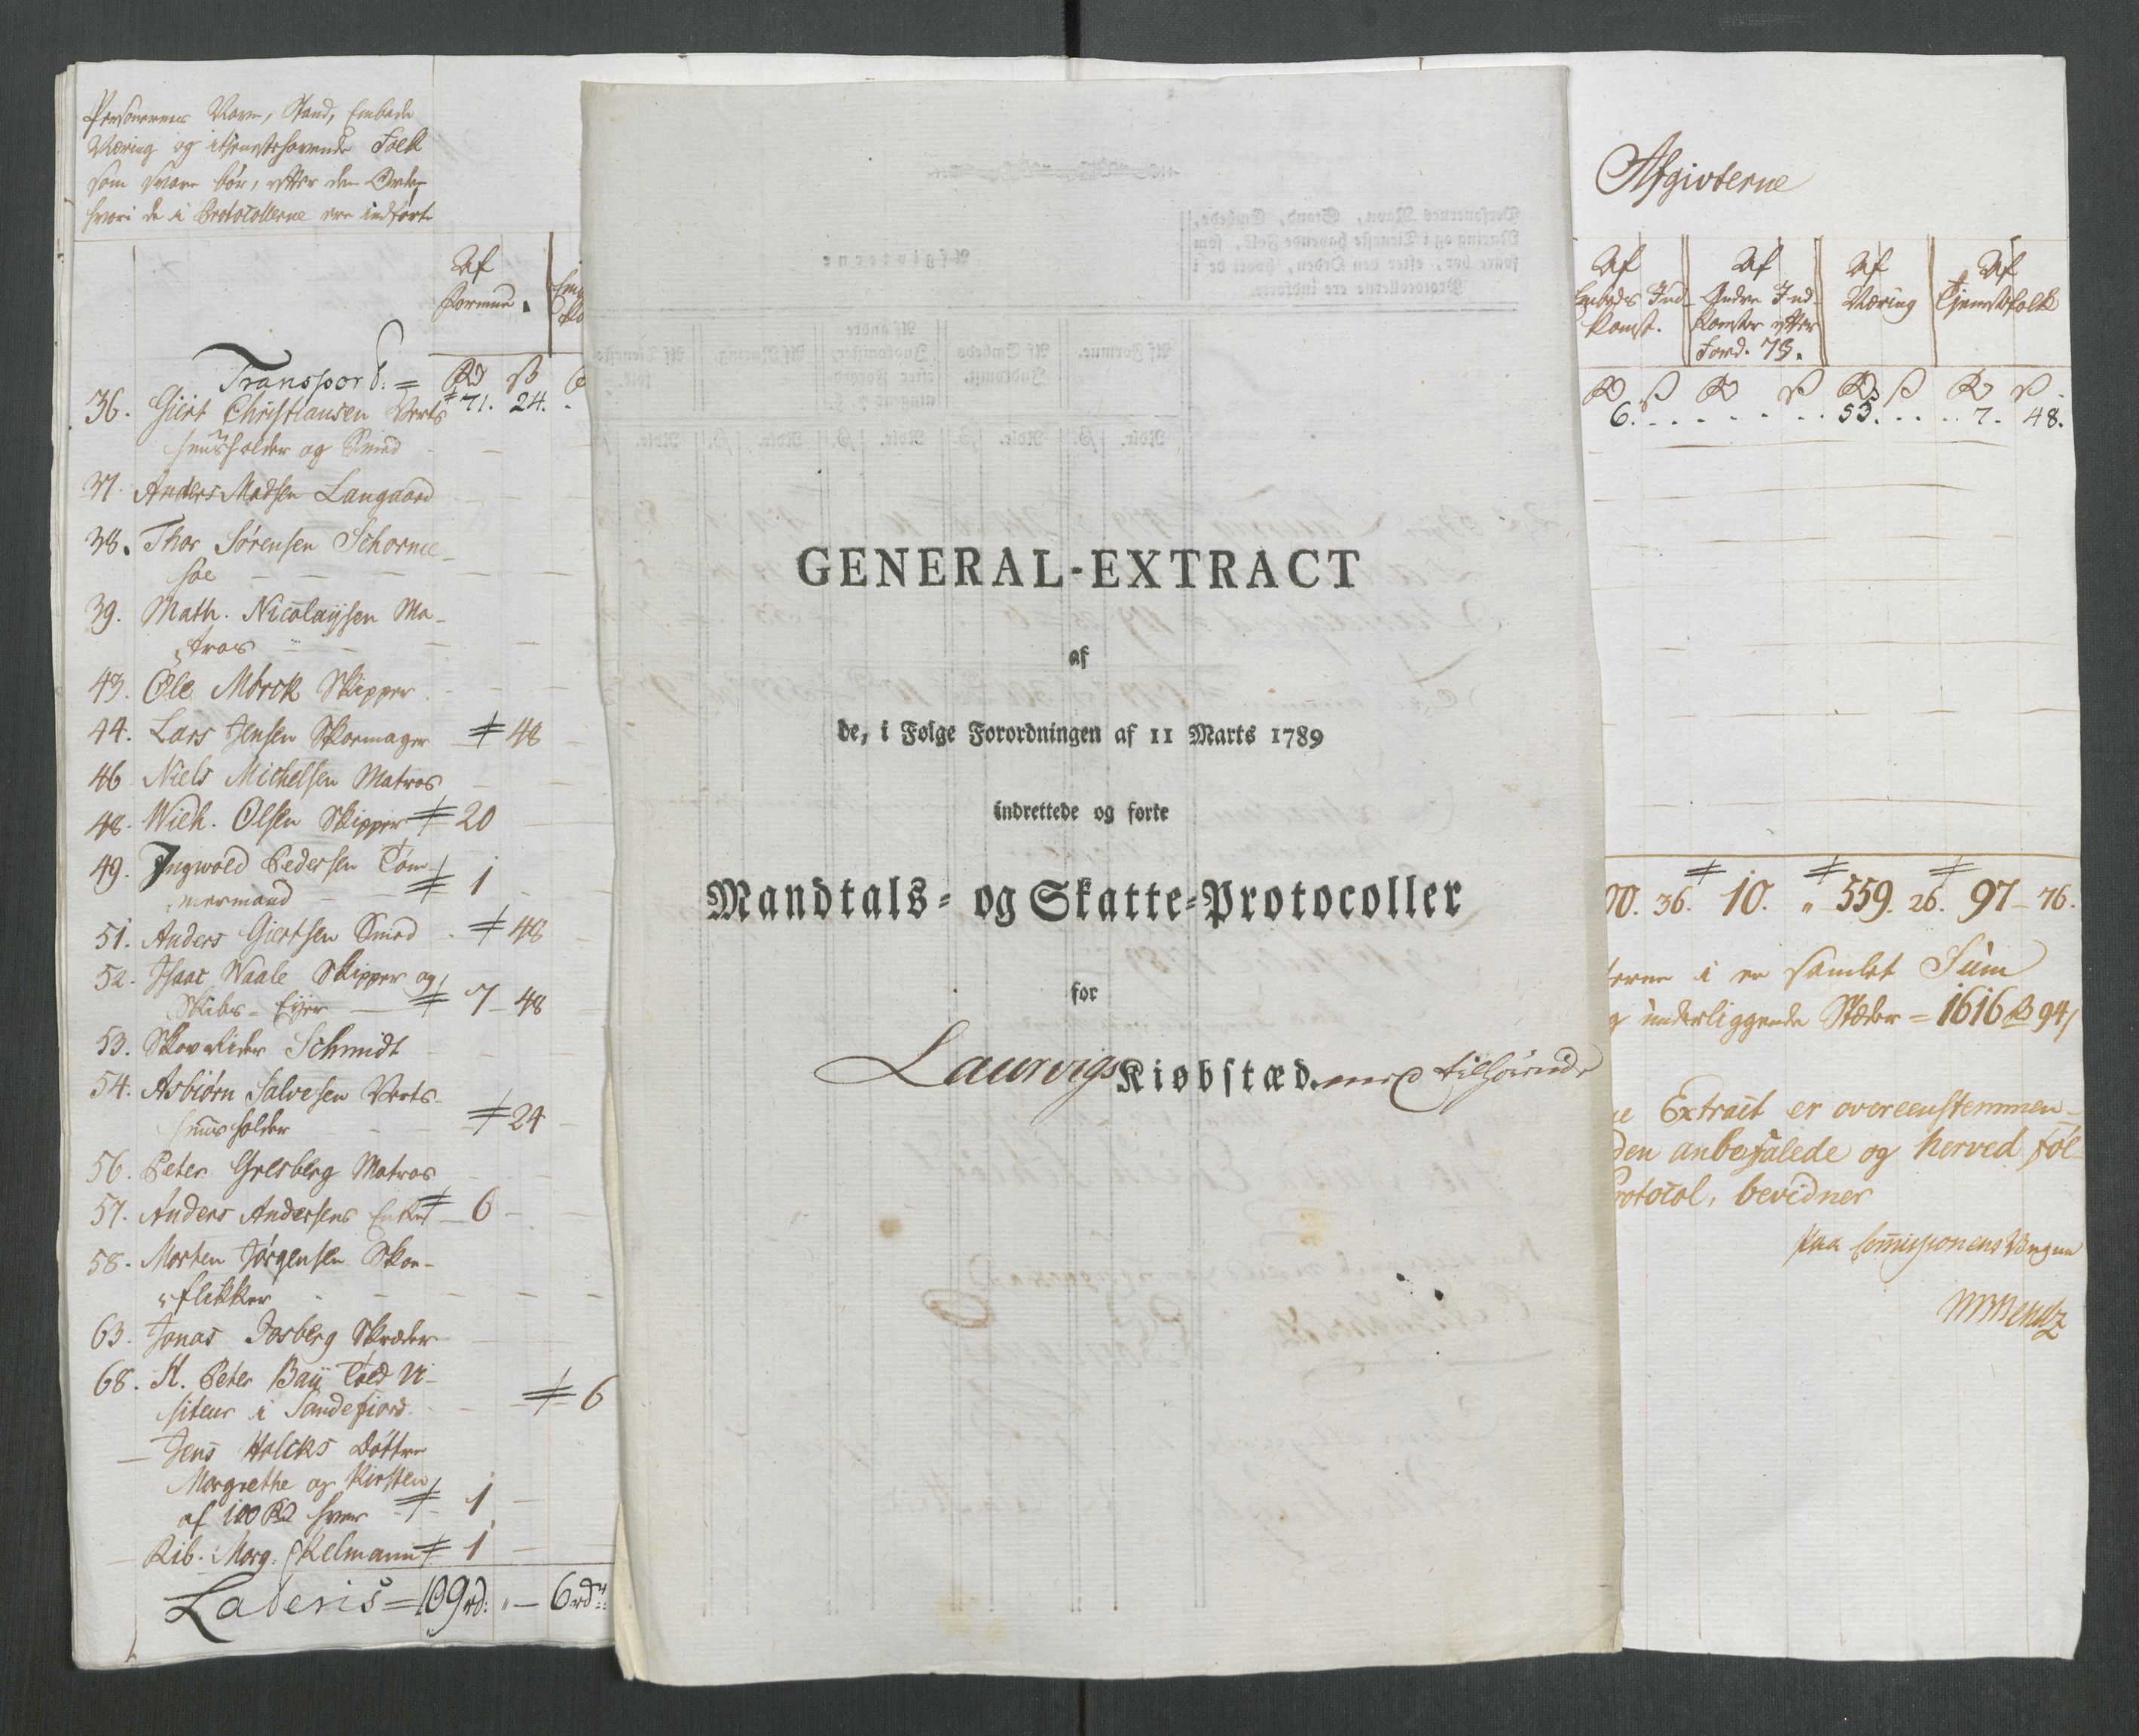 Personernes Navn, Stand, Embede
Næring og itienestehavende Folk
som svare bør, efter den Orden
hvori de i Protocollerne ere indført
Af
Formue.
Transport: = Rd ß
36. Giert Christiansen Verts # 71. 24.
huusholder og Smed
37. Anders Madsen Langaard
38. Thor Sørensen Schorme-
soe
39. Math. Nicolaysen Ma-
tros
43. Ole Mørck Skipper
44. Lars Jensen Skoemager # 48
46 Niels Michelsen Matros
48. Wich. Olsen Skipper # 20
49. Ingwold Pedersen Tøm-
mermand # 1
51. Anders Giertsen Smed # 48
52. Isaac Waale Skipper og
Skibs-Eyer # 7-48
53. Skovrider Schmidt
54. Asbiørn Salvesen Verts-
huusholder # 24
56. Peter Gresberg Matros
57. Anders Andersens Enke # 6
58. Morten Jørgensen Skoe-
flikker
63. Jonas Fosberg Skræder
68. H. Peter Bay Told Vi-
siteur i Sandefiord # 6
Jens Holcks Døttre
Margrethe og Kirsten
af 100 Rd hver # 1
Rib. Marg. Skelmann # 1
Lateris = 109 rd: " - 6 rd:
GENERAL-EXTRACT
af
de, i Følge Forordningen af 11 Marts 1789
indrettede og førte
Mandtals- og Skatte-Protocoller
for
Laurvigs Kiøbstæd med tilhørende
Afgivterne
Af Embeds Ind-
komst.
Af Andre Ind-
komster efter
Ford. 7 §.
Af
Næring
Af
Tjenestefolk
Rd ß Rd ß Rd ß Rd ß
6. 55. 7. 48.
00. 36. # 10. " # 559. 26. # 97-76.
terne i en samlet Sum
g underliggende Stæder = 1616 Rd 94 ß
ne Extract er overeenstemmen-
den anbefalede og herved føl-
rotocol, bevidner
paa Commissionens Vegne